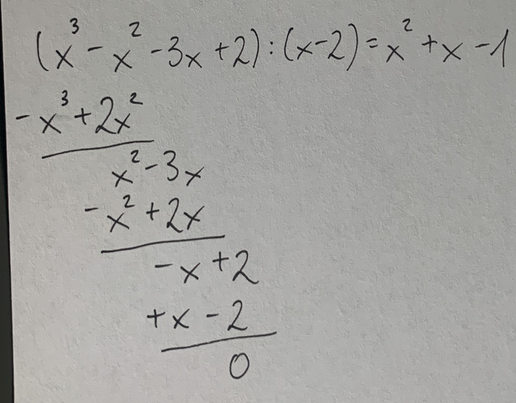 (x³ - x² - 3x + 2) : (x - 2) = x² + x - 1
- x³ + 2x²
x² - 3x
- x² + 2x
- x + 2
+ x - 2
0